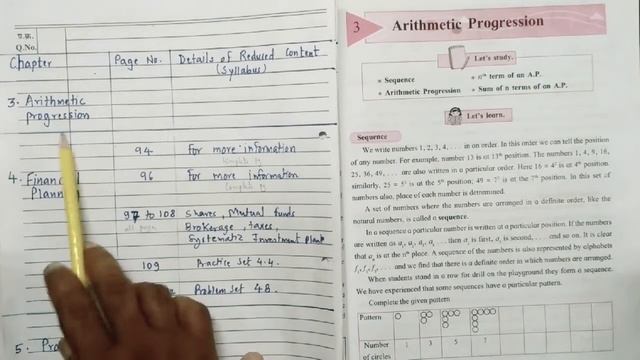 प्र.क्र.
Q.No.
Chapter Page No. Details of Reduced Content
(Syllabus)
3. Arithmetic
Progression
94 For more information
Complete Pg
4. Financial 96 For more information
Plann Complete Pg
97 to 108 Shares, Mutual funds
all page Brokerage, taxes,
Systematic Investment Plan
109 Practice Set 4.4.
Problem Set 4B.
5.
3 Arithmetic Progression
Let's study.
• Sequence • nth term of an A.P.
• Arithmetic Progression • Sum of n terms of an A.P.
Let's learn.
Sequence
We write numbers 1, 2, 3, 4, . . . in on order. In this order we can tell the position
of any number. For example, number 13 is at 13th position. The numbers 1, 4, 9, 16,
25, 36, 49, . . . are also written in a particular order. Here 16 = 4² is at 4th position.
similarly, 25 = 5² is at the 5th position; 49 = 7² is at the 7th position. In this set of
numbers also, place of each number is detremined.
A set of numbers where the numbers are arranged in a definite order, like the
natural numbers, is called a sequence.
In a sequence a particular number is written at a particular position. If the numbers
are written as a₁, a₂, a₃, a₄ . . . then a₁ is first, a₂ is second, . . . and so on. It is clear
that aₙ is at the nth place. A sequence of the numbers is also represented by alphabets
f₁, f₂, f₃, . . . and we find that there is a definite order in which numbers are arranged.
When students stand in a row for drill on the playground they form a sequence.
We have experienced that some sequences have a particular pattern.
Complete the given pattern
Pattern
Number 1 3 5 7
of circles